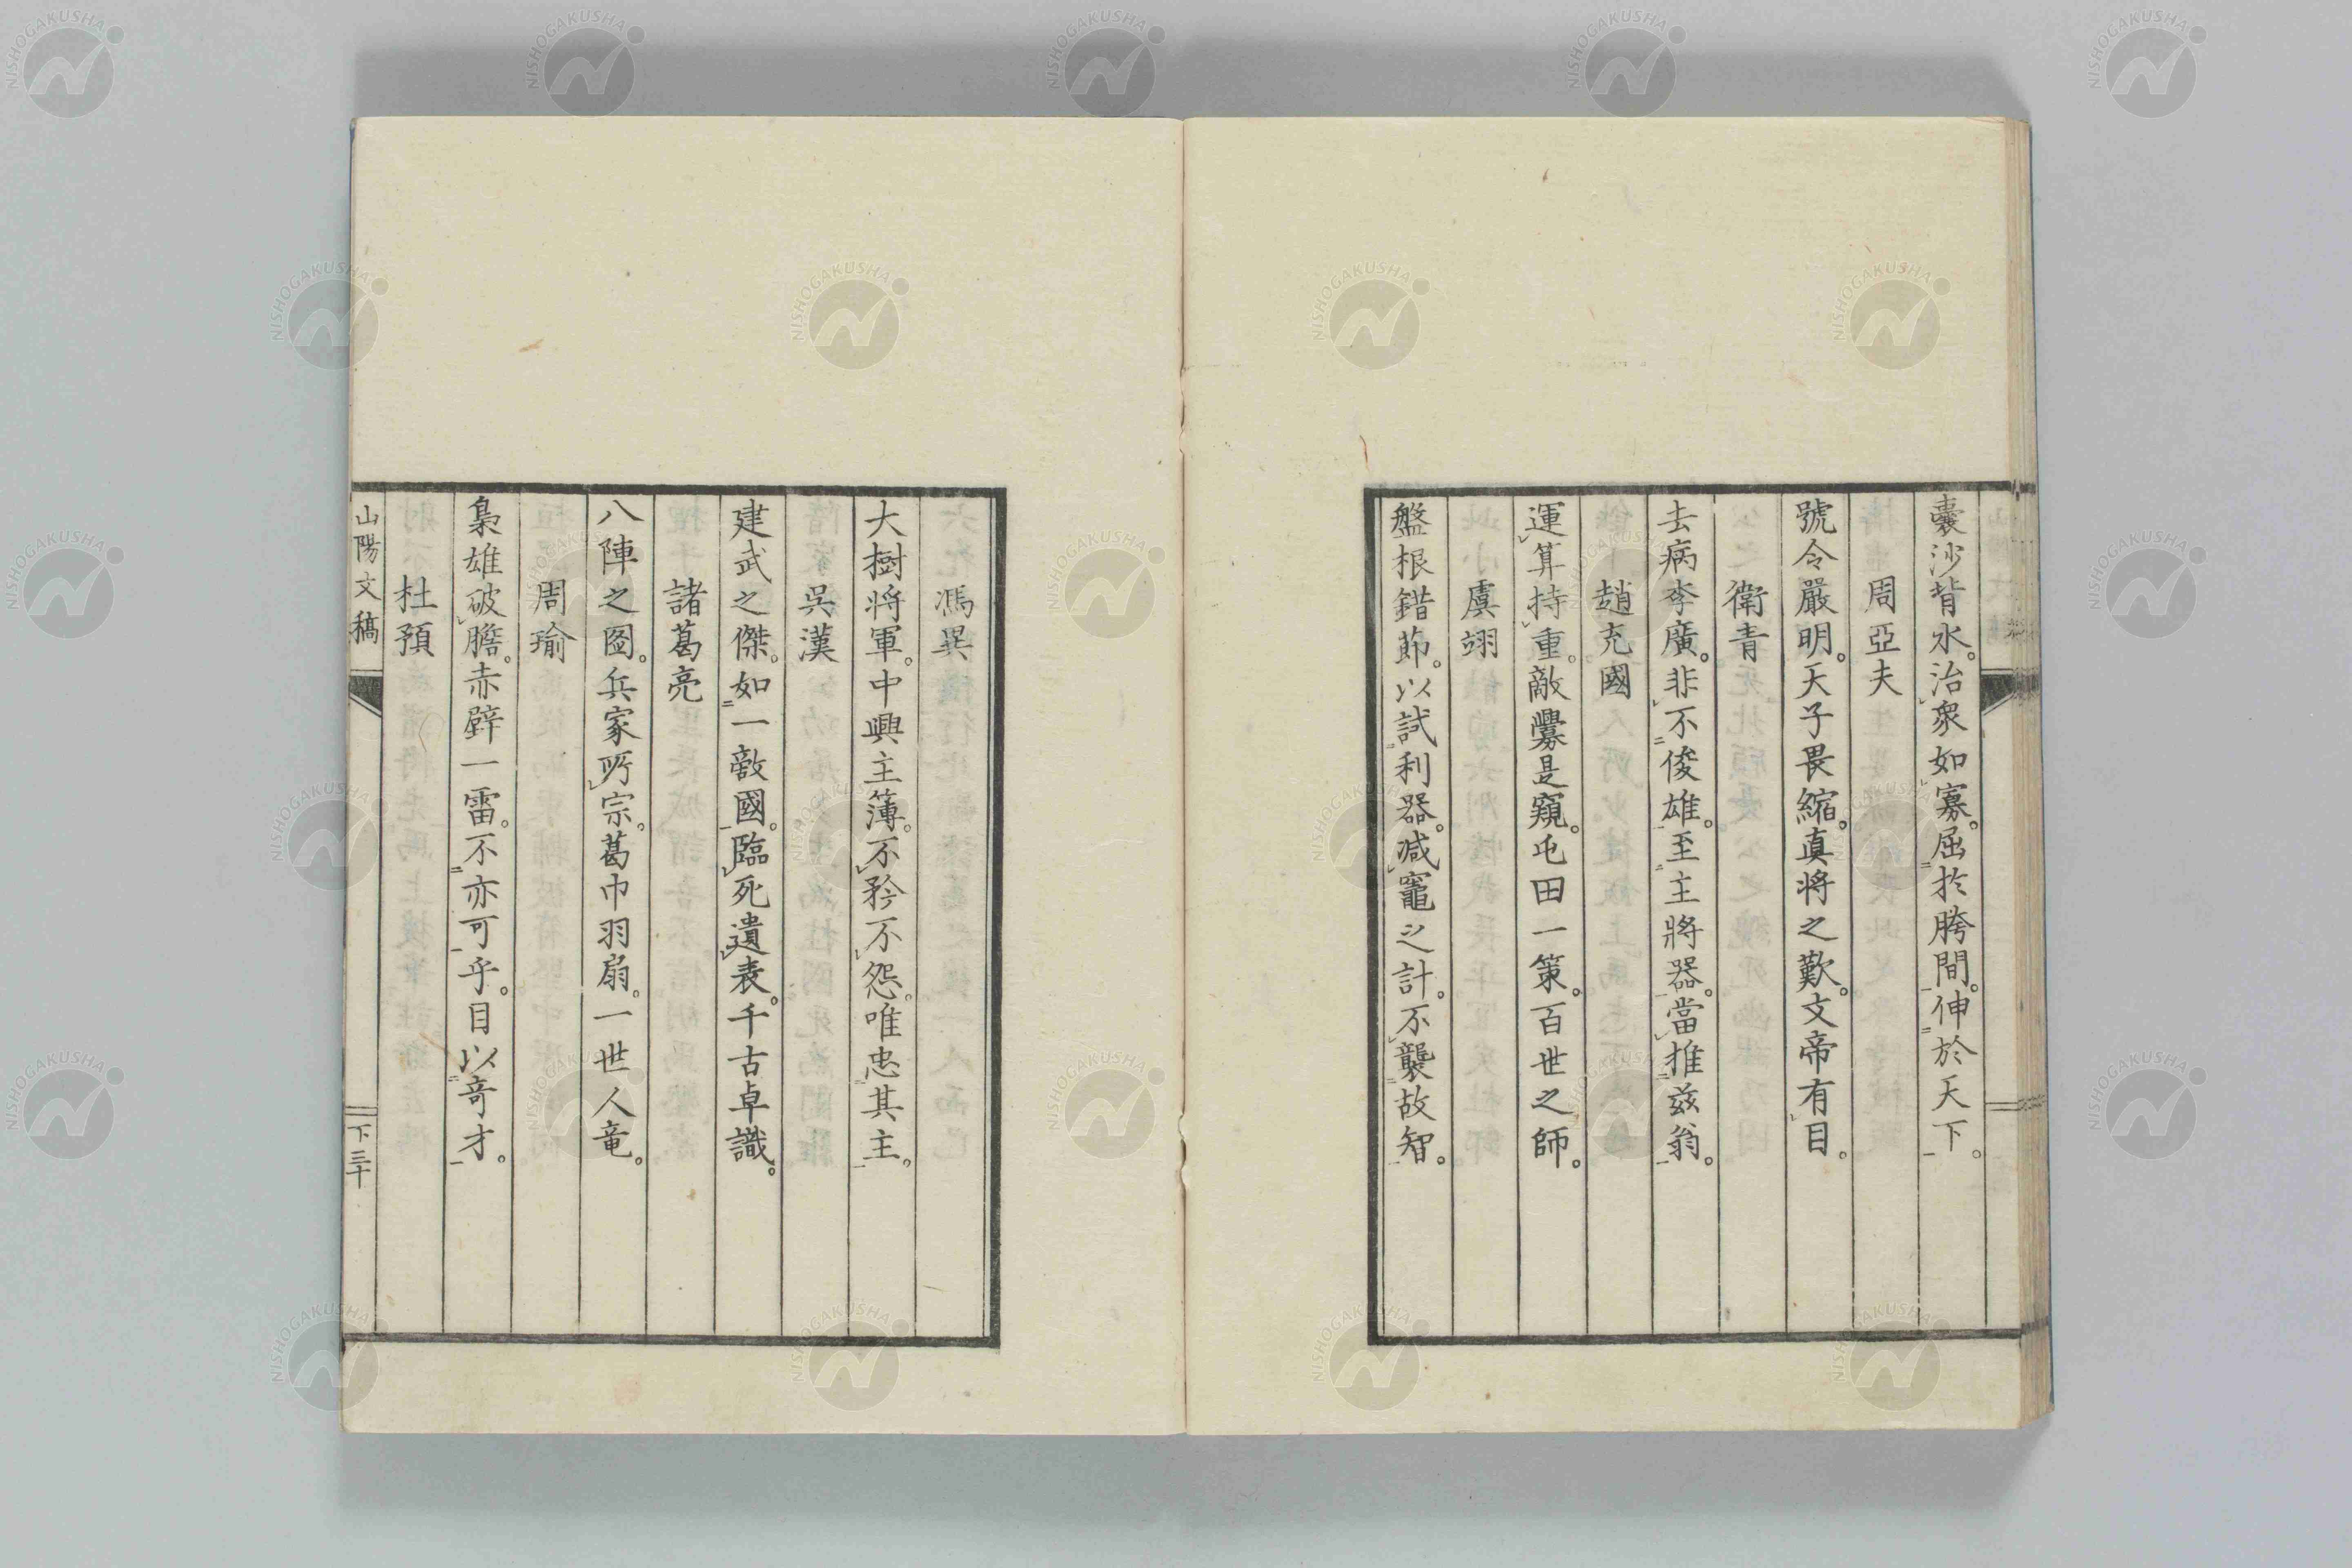 囊沙背水。治衆如寡。屈於胯間。伸於天下。
周亞夫
號令嚴明。天子畏縮。真將之歎。文帝有目。
衛青
去病李廣。非不俊雄。至主將器。當推茲翁。
趙充國
運算持重。敵釁是窺。屯田一策。百世之師。
虞翊
盤根錯節。以試利器。減竈之計。不襲故智。
馮異
大樹將軍。中興主簿。不矜不怨。唯忠其主。
吳漢
建武之傑。如一敵國。臨死遺表。千古卓識。
諸葛亮
八陣之圖。兵家所宗。葛巾羽扇。一世人竜。
周瑜
梟雄破膽。赤壁一雷。不亦可乎。目以奇才。
杜預
山陽文稿
下三十
NISHOGAKUSHA